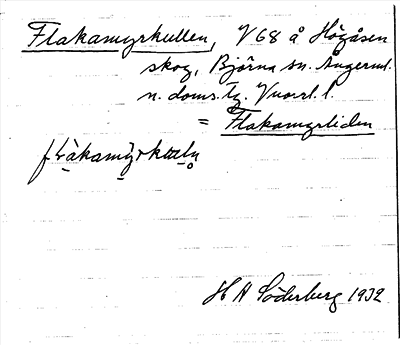 Flakamyrkullen, V 68 å Högåsen
skog, Björna sn. Ångerml.
n. doms.lg. Vnorrl. l.
= Flakamyrliden
H A Söderberg 1932